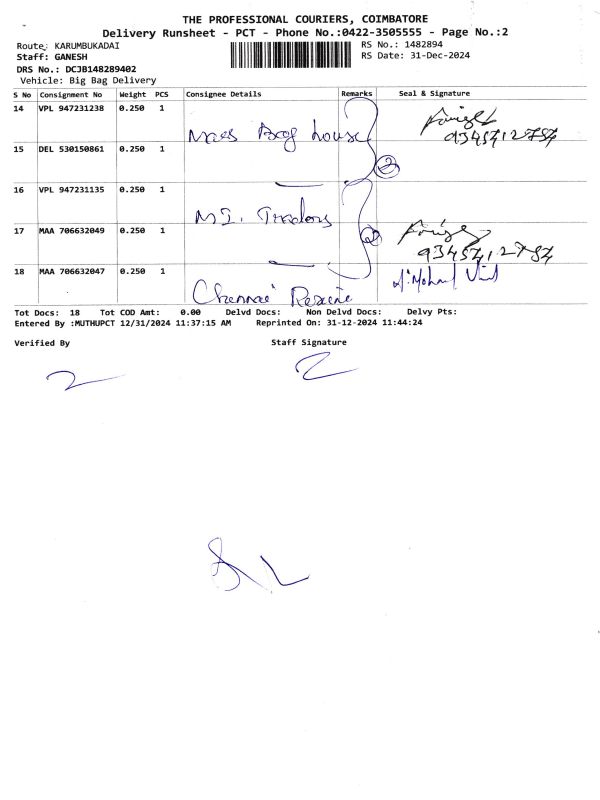 THE PROFESSIONAL COURIERS, COIMBATORE
Delivery Runsheet - PCT - Phone No.:0422-3505555 - Page No.:2
Route: KARUMBUKADAI RS No.: 1482894
Staff: GANESH RS Date: 31-Dec-2024
DRS No.: DCJB148289402
Vehicle: Big Bag Delivery
S No Consignment No Weight PCS Consignee Details Remarks Seal & Signature
14 VPL 947231238 0.250 1
Bag house
15 DEL 530150861 0.250 1
2
16 VPL 947231135 0.250 1
M.I. Traders
17 MAA 706632049 0.250 1
2
18 MAA 706632047 0.250 1
Chennai Rexine
Tot Docs: 18 Tot COD Amt: 0.00 Delvd Docs: Non Delvd Docs: Delvy Pts:
Entered By :MUTHUPCT 12/31/2024 11:37:15 AM Reprinted On: 31-12-2024 11:44:24
Verified By Staff Signature